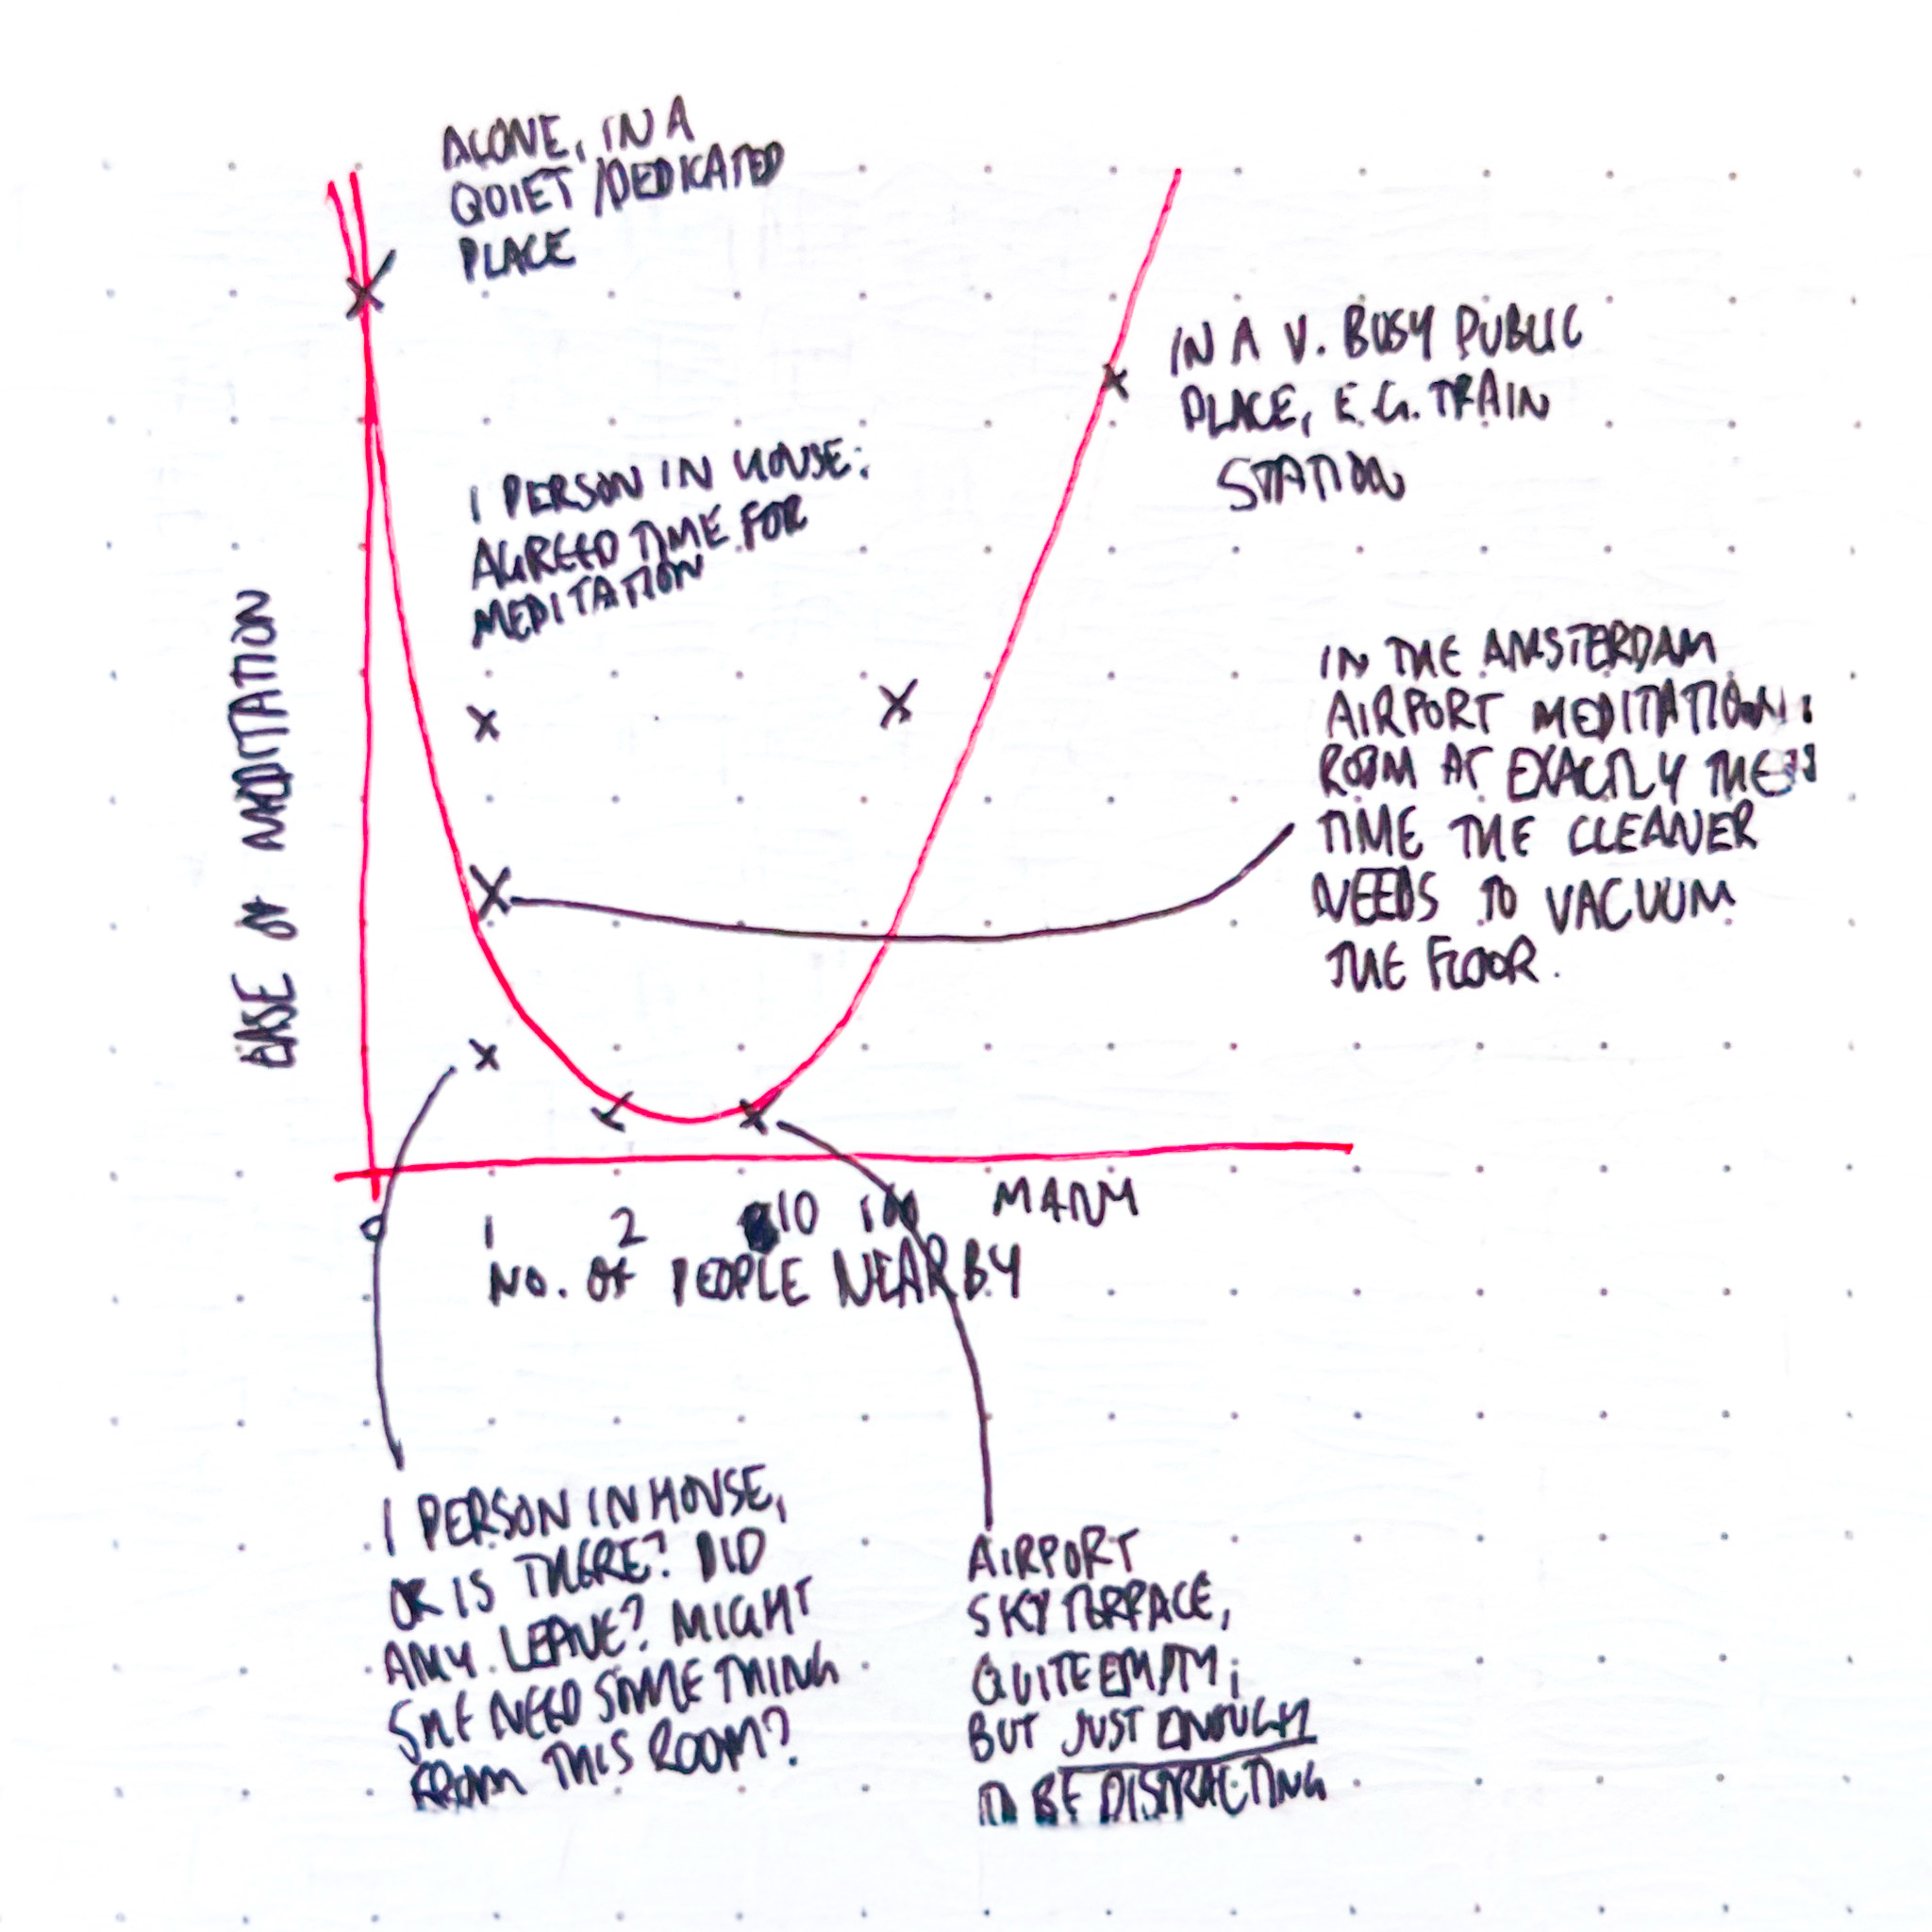 ALONE, IN A
QUIET/DEDICATED
PLACE
IN A V. BUSY PUBLIC
PLACE, E.G. TRAIN
STATION
1 PERSON IN HOUSE:
AGREED TIME FOR
MEDITATION
IN THE AMSTERDAM
AIRPORT MEDITATION
ROOM AT EXACTLY THE
TIME THE CLEANER
NEEDS TO VACUUM
THE FLOOR.
EASE OF MEDITATION
0 1 2 10 100 MANY
NO. OF PEOPLE NEARBY
1 PERSON IN HOUSE,
OR IS THERE? DID
AMY LEAVE? MIGHT
SHE NEED SOMETHING
FROM THIS ROOM?
AIRPORT
SKY TERRACE,
QUITE EMPTY;
BUT JUST ENOUGH
TO BE DISTRACTING